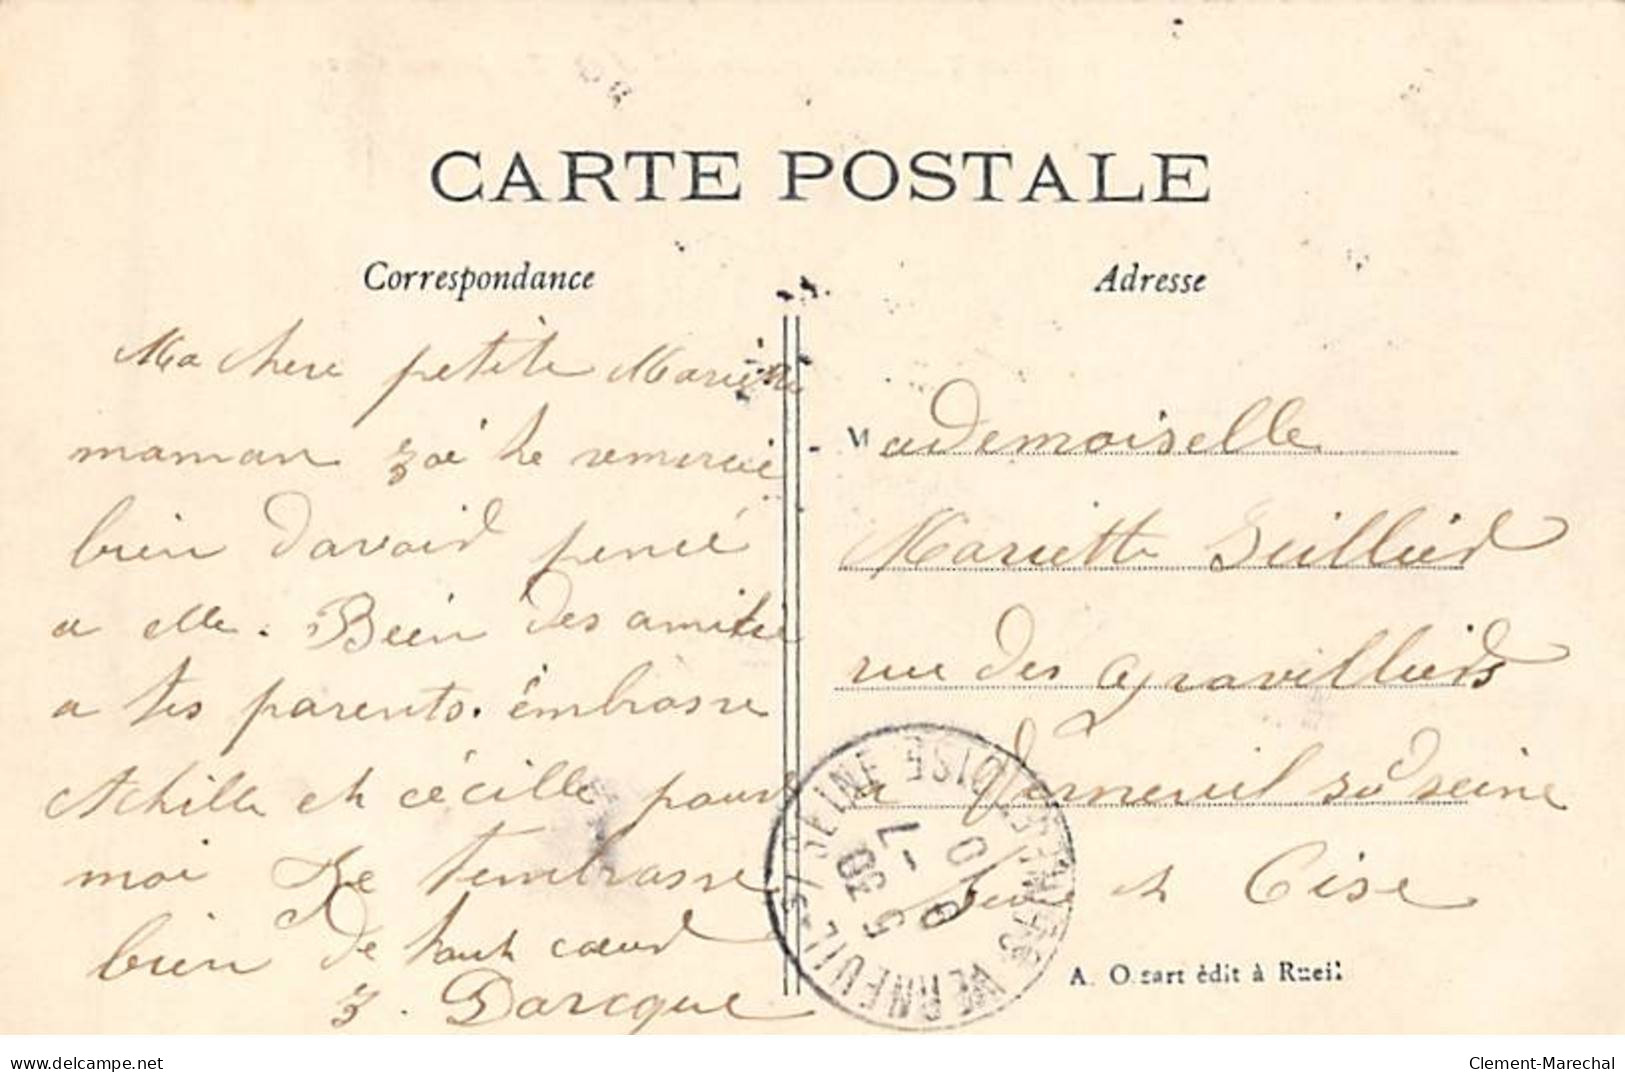 CARTE POSTALE
Correspondance
Ma chere petite Mariette
maman zoé te remercie
bien davoir pencé
a elle. Bien des amitié
a tes parents. émbrasse
Achille et cécille pour
moi Je tembrasse
bien de tout cœur
z. Darcque
Adresse
Mademoiselle
Mariette Seillier
rue des Gravilliers
a Verneuil sur seine
Seine et Oise
VERNEUIL-S/-SEINE SEINE-ET-OISE
A. O art édit à Rueil
www.delcampe.net
Clement-Marechal